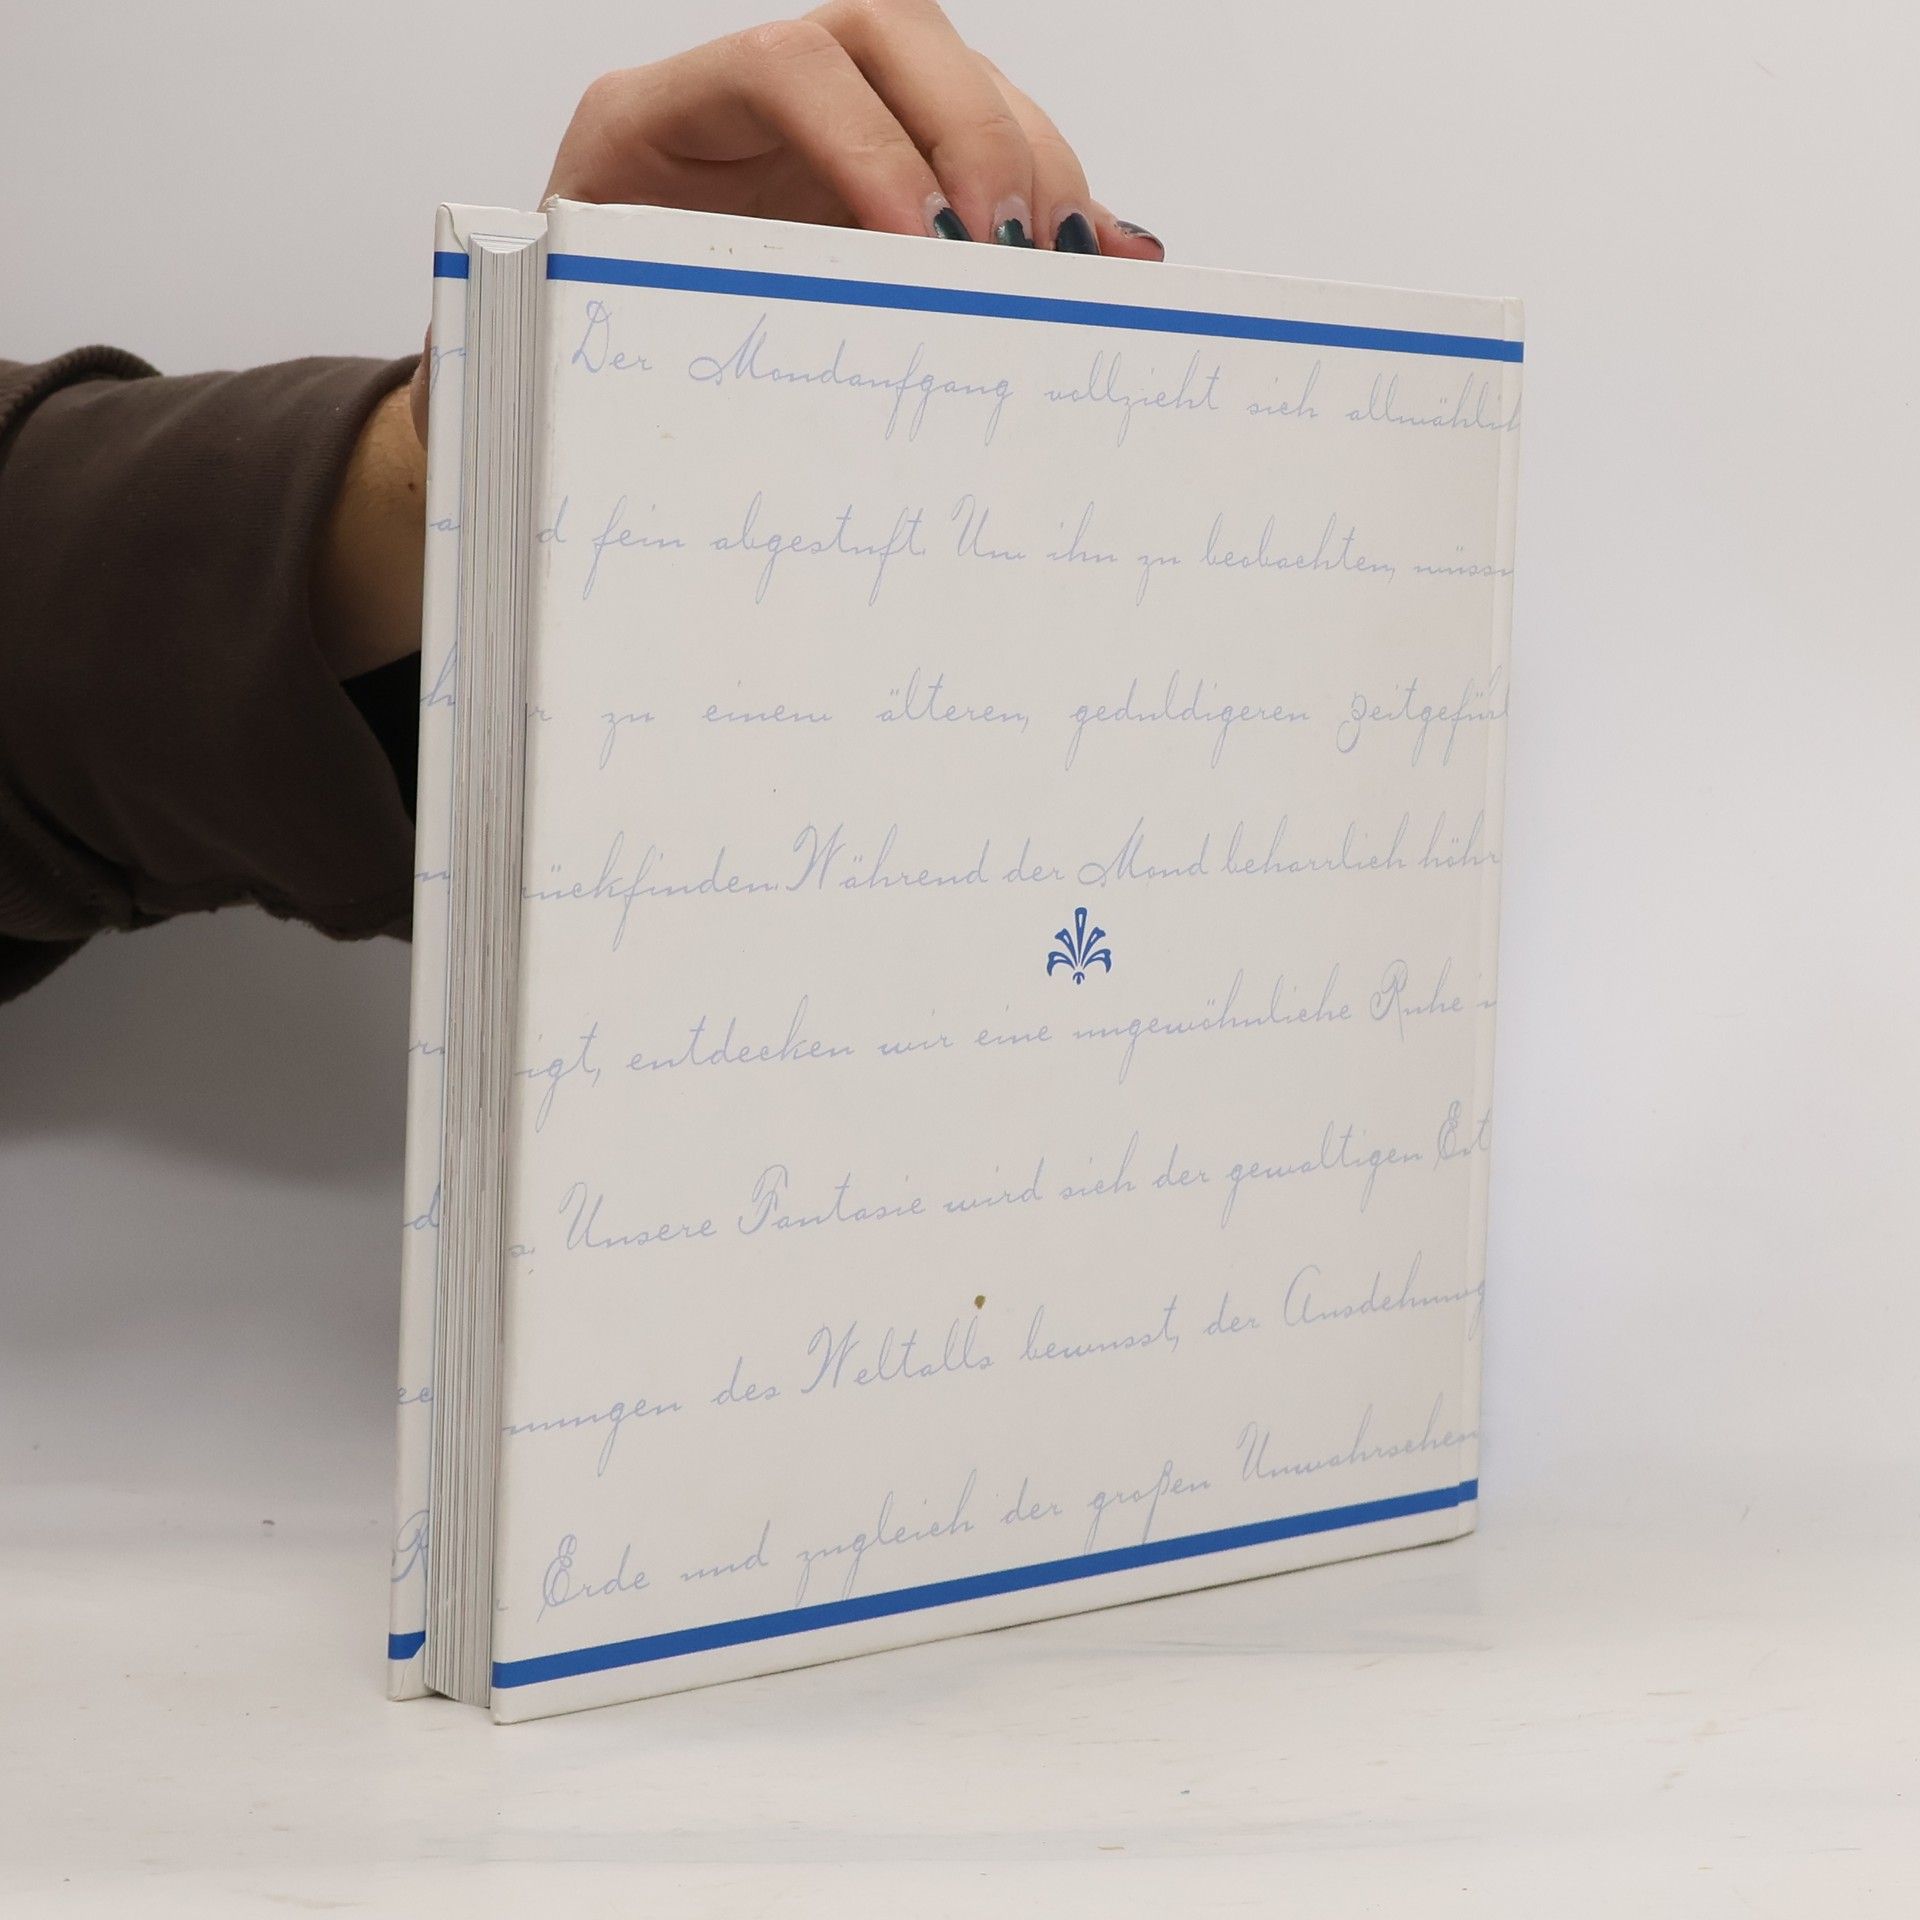 Der Mondaufgang vollzieht sich allmählich
d fein abgestuft. Um ihn zu beobachten, müss
r zu einem älteren, geduldigeren Zeitgefühl
rückfinden. Während der Mond beharrlich höhr
igt, entdecken wir eine ungewöhnliche Ruhe in
s. Unsere Fantasie wird sich der gewaltigen Ent
nungen des Weltalls bewusst, der Ausdehnung
r Erde und zugleich der großen Unwahrschein